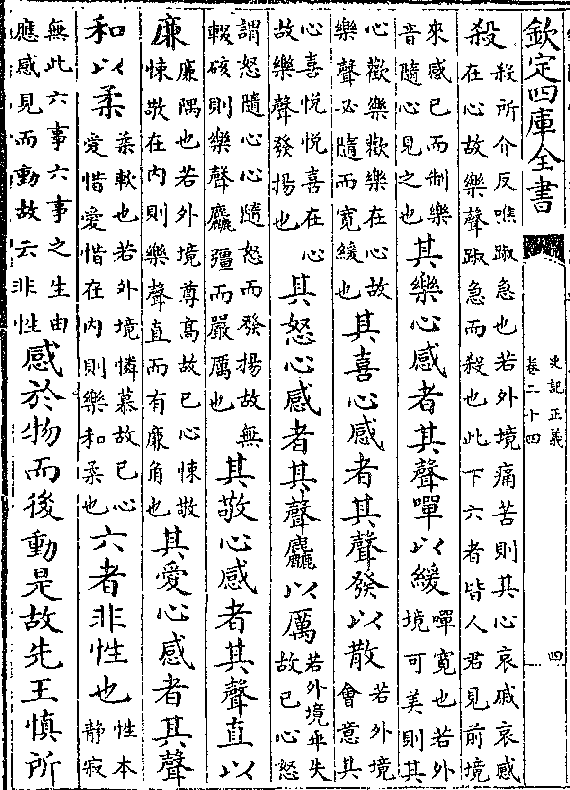 欽定四庫全書
史記正義
卷二十四
四
殺殺所介反噍踧急也若外境痛苦則其心哀戚哀感在心故樂聲踧急而殺也此下六者皆人君見前境
來感已而制樂音隨心見之也其樂心感者其聲嘽以緩嘽寬也若外境可美則其
心歡樂歡樂在心故樂聲必隨而寬緩也其喜心感者其聲發以散若外境會意其
心喜悅悅喜在心故樂聲發揚也其怒心感者其聲麤以厲若外境乖失故已心怒
謂怒隨心心隨怒而發揚故無輟硋則樂聲麤彊而嚴厲也其敬心感者其聲直以
廉廉隅也若外境尊高故已心悚敬悚敬在內則樂聲直而有廉角也其愛心感者其聲
和以柔柔軟也若外境憐慕故已心愛惜愛惜在內則樂和柔也六者非性也性本靜寂
無此六事六事之生由應感見而動故云非性感於物而後動是故先王慎所